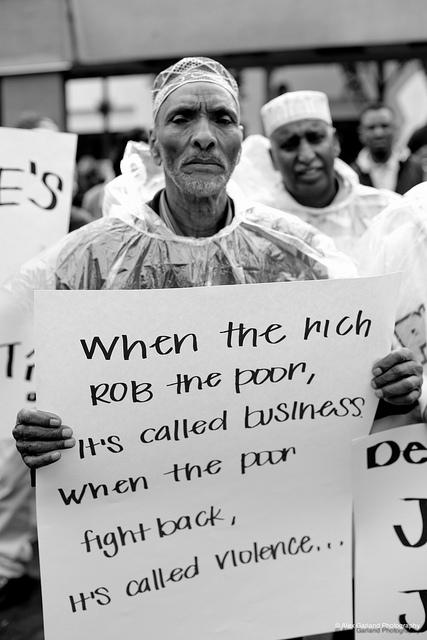 When the rich
ROB the poor,
it's called business.
When the poor
fight back,
it's called violence...
E'S
De
J
J
© Alex Garland Photography